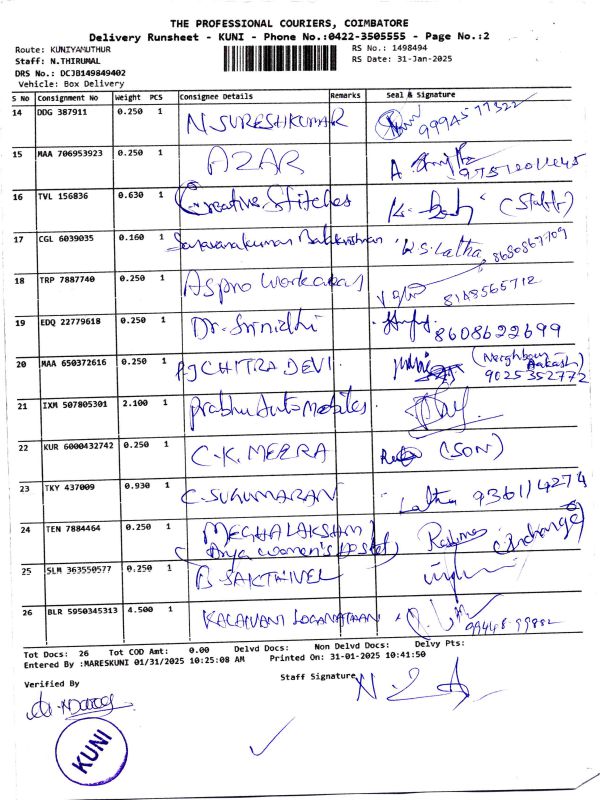 THE PROFESSIONAL COURIERS, COIMBATORE
Delivery Runsheet - KUNI - Phone No.:0422-3505555 - Page No.:2
Route: KUNIYAMUTHUR RS No.: 1498494
Staff: N.THIRUMAL RS Date: 31-Jan-2025
DRS No.: DCJB149849402
Vehicle: Box Delivery
S No Consignment No Weight PCS Consignee Details Remarks Seal & Signature
14 DDG 387911 0.250 1 N.SURESHKUMAR 9994577322
15 MAA 706953923 0.250 1 AZAR A
16 TVL 156836 0.630 1 Creative Stitches (Staff)
17 CGL 6039035 0.160 1 Saravanakumar Balakrishnan K.S.Latha 8680867709
18 TRP 7887740 0.250 1 Aspro 8148565712
19 EDQ 22779618 0.250 1 Dr. Srinidhi 8608622699
20 MAA 650372616 0.250 1 PJ CHITRA DEVI (Neighbour Aakash) 9025352772
21 IXM 507805301 2.100 1 Prabhu Automobiles
22 KUR 6000432742 0.250 1 C.K. MEERA (SON)
23 TKY 437009 0.930 1 C. SUKUMARAN Latha 9361114274
24 TEN 7884464 0.250 1 MEGHALAKSHMI
(Arya women's Hostel) (Incharge)
25 SLM 363550577 0.250 1 B SAKTHIVEL
26 BLR 5950345313 4.500 1 KALAIVANI LOGANATHAN 99448-99882
Tot Docs: 26 Tot COD Amt: 0.00 Delvd Docs: Non Delvd Docs: Delvy Pts:
Entered By :MARESKUNI 01/31/2025 10:25:08 AM Printed On: 31-01-2025 10:41:50
Verified By Staff Signature
KUNI